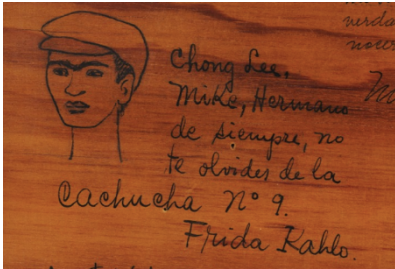 Chong Lee,
Mike, Hermano
de siempre, no
te olvides de la
Cachucha Nº 9.
Frida Kahlo.